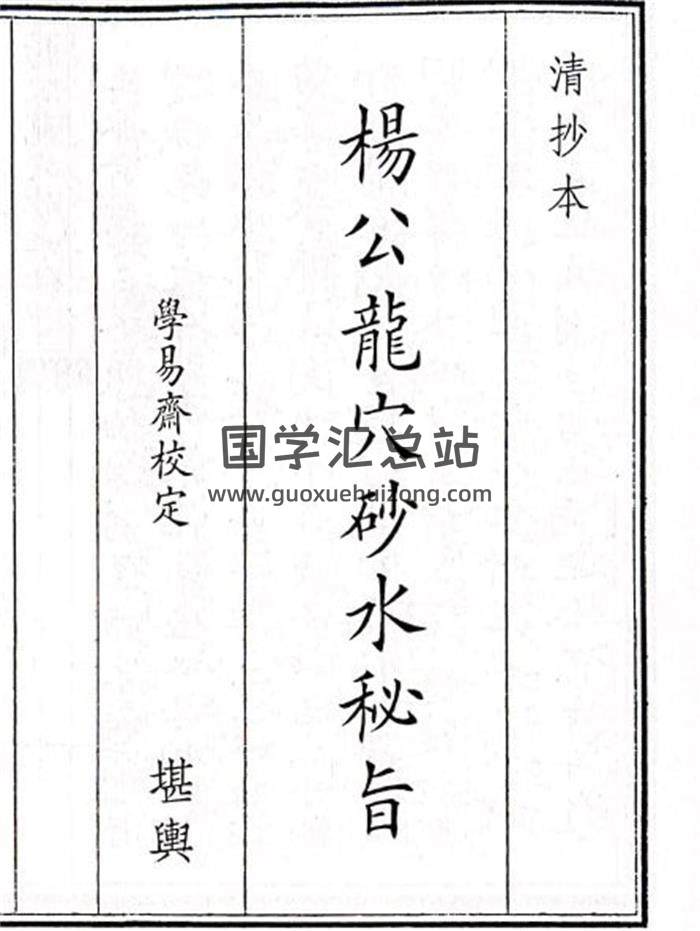 清抄本
楊公龍穴砂水秘旨
學易齋校定
堪輿
国学汇总站
www.guoxuehuizong.com